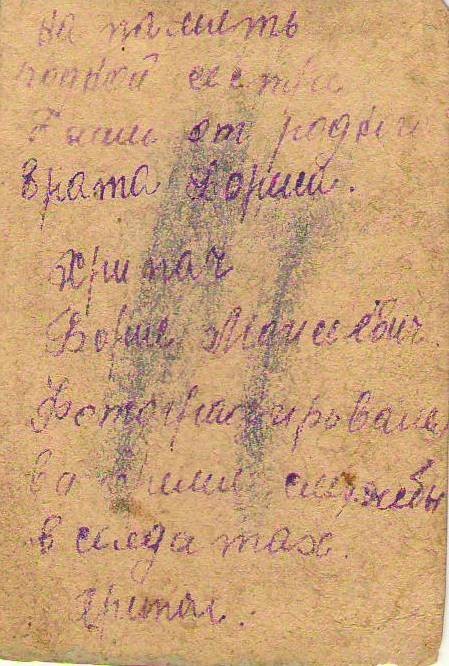 на память
родной сестры
от родного
брата Бориса.
Хрипач
Борис Моисеевич.
Фотографировался
во время службы
в солдатах.